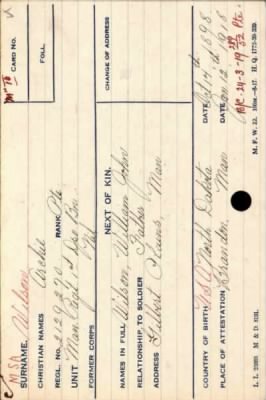 M.S.A.
SURNAME. Wilson
CHRISTIAN NAMES Archie
REGL. No. 2129270 RANK Pte
UNIT Man Regt 1st Dep Bn.
FORMER CORPS Nil
CARD NO.
FOLL.
NEXT OF KIN.
CHANGE OF ADDRESS
NAMES IN FULL Wilson William John
RELATIONSHIP TO SOLDIER Father
ADDRESS Gilbert Plains Man
COUNTRY OF BIRTH U.S.A. North Dakota DATE 14th 1898
PLACE OF ATTESTATION Brandon Man DATE Jan 12th 1918
24-3-19
M. F. W. 22. H. Q. 1772-39-339.